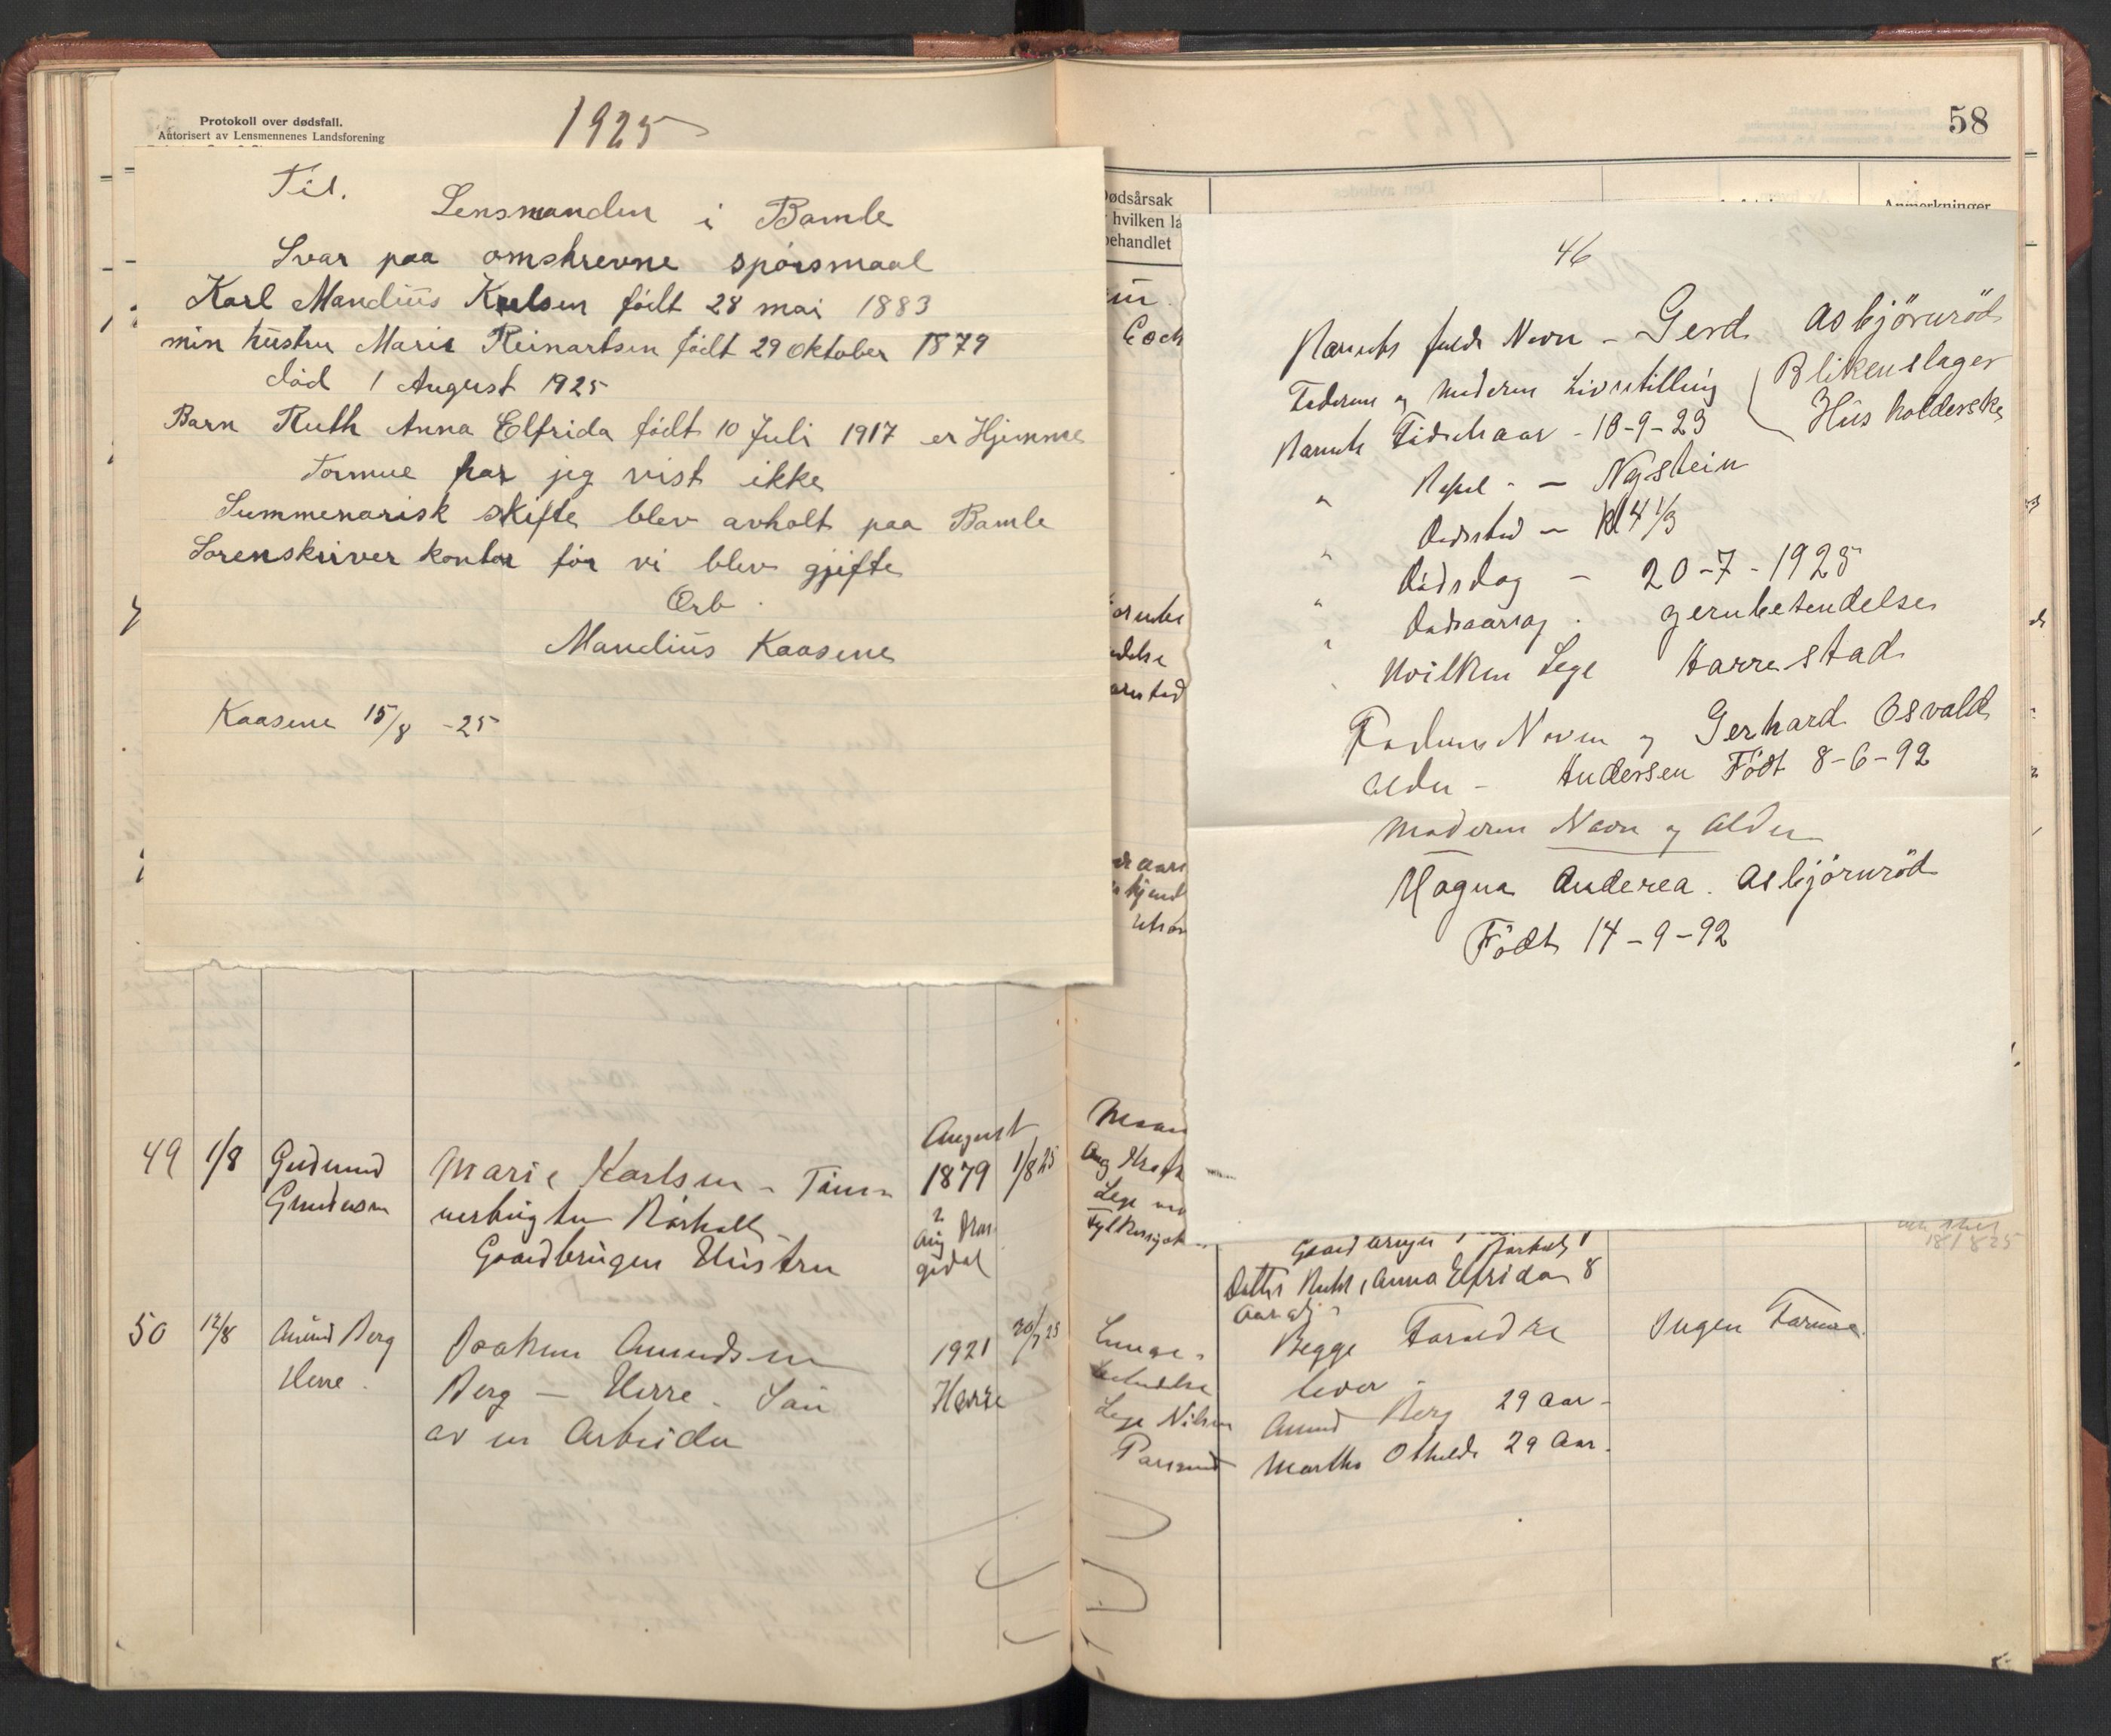 Protokoll over dødsfall.
Autorisert av Lensmennenes Landsforening
1925
Til.
Lensmanden i Bamle
Svar paa omskrevne spörsmaal
Karl Mandius Karlsen födt 28 mai 1883
min hustru Marie Reinartsen födt 29 oktober 1879
död 1 August 1925
Barn Ruth Anna Elfrida födt 10 Juli 1917 er Hjemme
Formue har jeg vist ikke
Summenarisk skifte blev avholt paa Bamle
Sorenskriver kontor för vi blev gjifte
Erb.
Mandius Kaasene
Kaasene 15/8 -25
49 1/8 Gudmund
Marie Karlsen - 
August
1879 1/8 25
Gaardbruger Hustru
50 12/8 Amund Berg
Herre.
Joakim Amundsen
Berg - Herre. Sön
av en Arbeider
1921
Herre
58
Dødsårsak
hvilken læ
behandlet
Anmerkninger
46
Barnets fulde Navn - Gerd Asbjörnröd
Faderens og Moderens Livsstilling Blikenslager
Husholderske
Barnets Födselsaar - 18-9-23
" Bopel - - Nystein
" Dödsted - Kl 4 1/3
" Dödsdag - 20-7-1925
" Dödsaarsag . Hjernebetendelse
Hvilken Lege Harrestad
Faderens Navn og Gerhard Osvald
alder - Andersen Födt 8-6-92
Moderens Navn og Alder
Magna Anderea. Asbjörnröd
Födt 14-9-92
18/8 25
Datter Ruth, Anna Elfrida 8
aar
Lunge-
betendelse
Lege Nilsen
Begge Foreldre
lever -
Amund Berg 29 Aar -
Martha Othilde 29 Aar.
Ingen Formue.